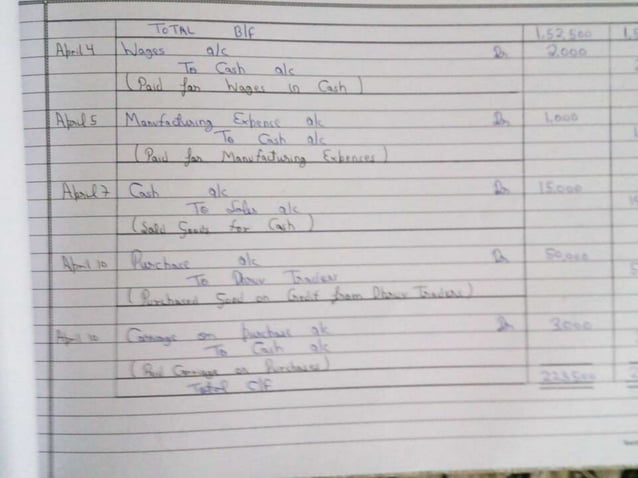 TOTAL B/f 1,52,500 1,5
April 4 Wages a/c Dr 2,000
To Cash a/c
(Paid for Wages in Cash)
April 5 Manufacturing Expence a/c Dr 1,000
To Cash a/c 1
(Paid for Manufacturing Expences)
April 7 Cash a/c Dr 15,000
To Sales a/c
(Sold Goods for Cash)
April 10 Purchase a/c Dr 50,000
To Dhruv Traders 5
(Purchased Good on Credit from Dhruv Traders)
April 10 Carriage on purchase a/c Dr 3000
To Cash a/c
(Paid Carriage on Purchases)
Total C/f 223500 2